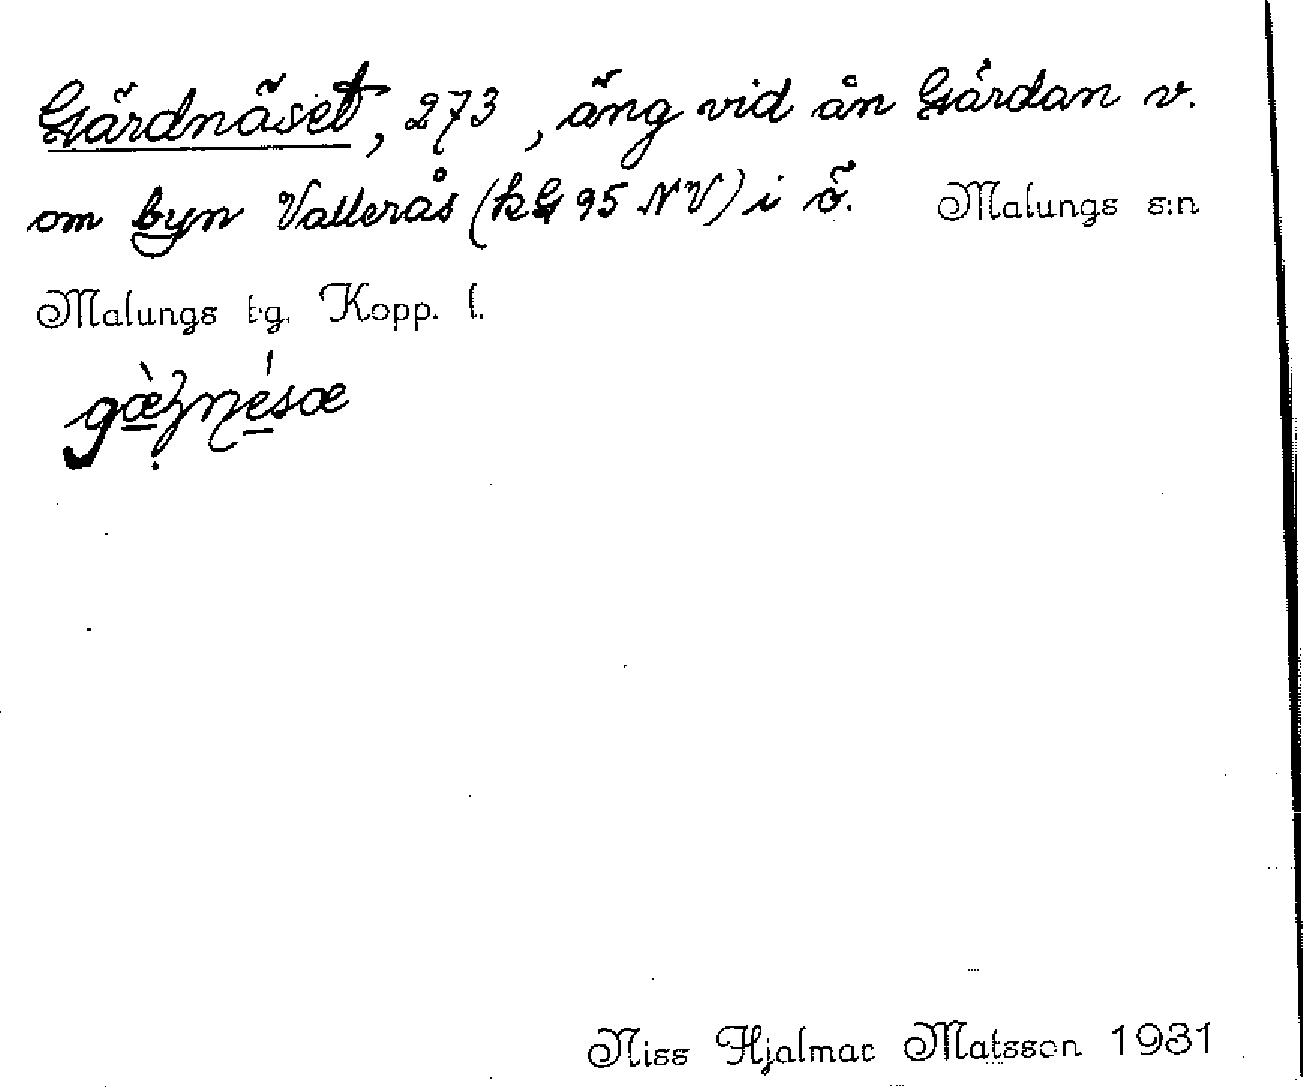 Gärdnäset, 273, äng vid ån Gärdan v.
om byn Vallerås (kG 95 NV) i ö. Malungs s:n
Malungs tg. Kopp. l.
Niss Hjalmar Matsson 1931